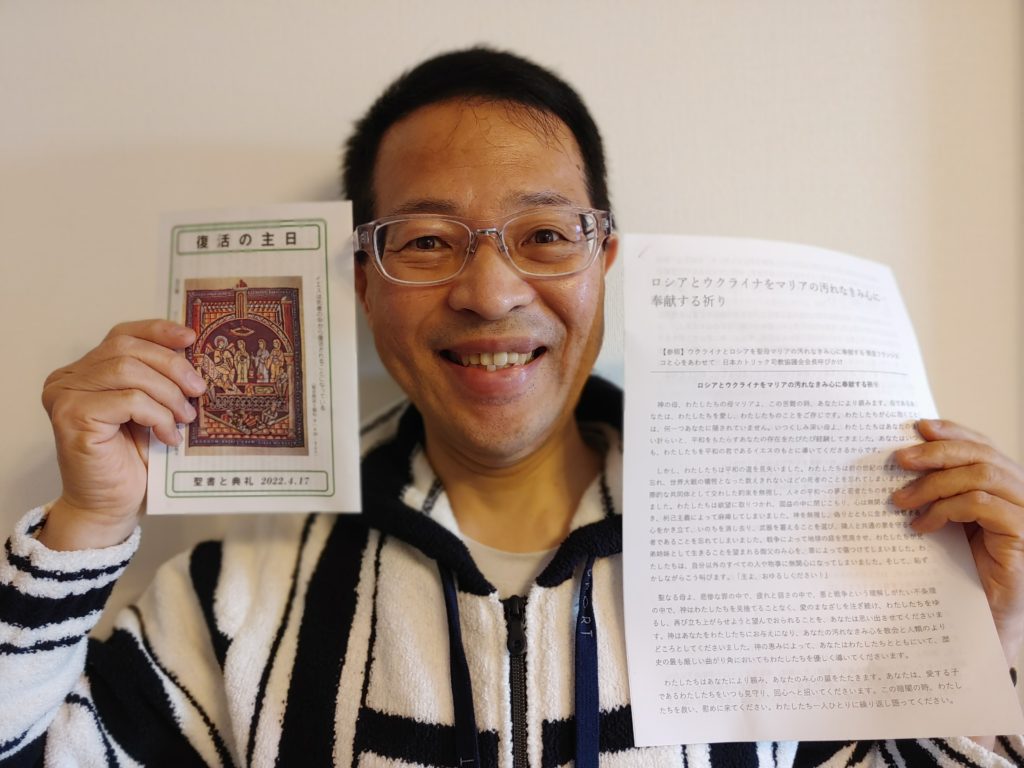 復活の主日
聖書と典礼 2022.4.17
ロシアとウクライナをマリアの汚れなきみ心に
奉献する祈り
【参照】ウクライナとロシアを聖母マリアの汚れなきみ心に奉献する教皇フランシス
コと心をあわせて 日本カトリック司教協議会会長呼びかけ
ロシアとウクライナをマリアの汚れなきみ心に奉献する祈り
神の母、わたしたちの母マリアよ、この苦難の時、あなたにより頼みます。母であるあ
なたは、わたしたちを愛し、わたしたちのことをご存じです。わたしたちが心に抱くこと
は、何一つあなたに隠されていません。いつくしみ深い母よ、わたしたちはあなたの
計らいと、平和をもたらすあなたの存在をたびたび経験してきました。あなたはいつ
も、わたしたちを平和の君であるイエスのもとに導いてくださるからです。
しかし、わたしたちは平和の道を見失いました。わたしたちは前の世紀の悲劇
忘れ、世界大戦の犠牲となった数えきれないほどの死者のことを忘れてしまいまし
際的な共同体として交わした約束を無視し、人々の平和への夢と若者たちの希望
ました。わたしたちは欲望に取りつかれ、国益の中に閉じこもり、心は無関心に
き、利己主義によって麻痺してしまいました。神を無視し、偽りとともに生き、
心をかき立て、いのちを消し去り、武器を蓄えることを選び、隣人と共通の家を守る
者であることを忘れてしまいました。戦争によって地球の庭を荒廃させ、わたしたちが兄
弟姉妹として生きることを望まれる御父のみ心を、罪によって傷つけてしまいました。わ
たしたちは、自分以外のすべての人や物事に無関心になってしまいました。そして、恥ず
かしながらこう叫びます。「主よ、おゆるしください！」
聖なる母よ、悲惨な罪の中で、疲れと弱さの中で、悪と戦争という理解しがたい不条理
の中で、神はわたしたちを見捨てることなく、愛のまなざしを注ぎ続け、わたしたちをゆ
るし、再び立ち上がらせようと望んでおられることを、あなたは思い出させてくださいま
す。神はあなたをわたしたちにお与えになり、あなたの汚れなき心を教会と人類のより
どころとしてくださいました。神の恵みによって、あなたはわたしたちとともにいて、歴
史の最も厳しい曲がり角においてもわたしたちを優しく導いてくださいます。
わたしたちはあなたにより頼み、あなたのみ心の扉をたたきます。あなたは、愛する子
であるわたしたちをいつも見守り、回心へと招いてくださいます。この暗闇の時、わたし
たちを救い、慰めに来てください。わたしたち一人ひとりに繰り返し語ってください。